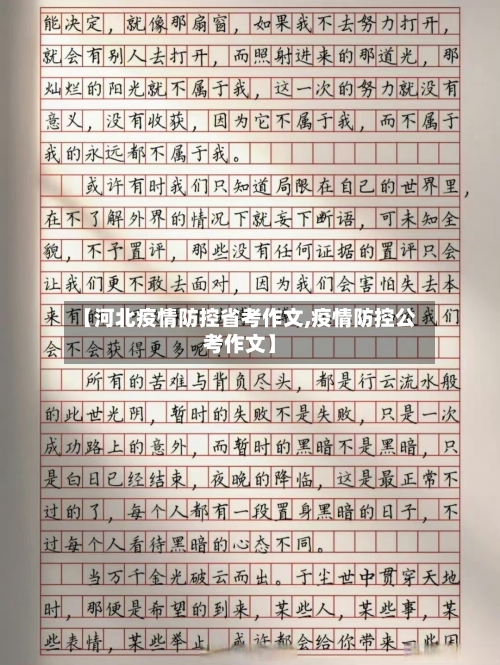 能决定，就像那扇窗，如果我不去努力打开，
就会有别人去打开，而照射进来的那道光，那
灿烂的阳光就不属于我，这一次的努力就没有
意义，没有收获，因为它不属于我，而不属于
我的永远都不属于我。
或许有时我们只知道局限在自己的世界里，
在不了解外界的情况下就妄下断语，可未知全
貌，不予置评，那些没有任何证据的置评只会
让我们更不敢去面对，因为我们会害怕失去本
来有
【河北疫情防控省考作文,疫情防控公
考作文】
会不会获得更多呢
所有的苦难与背负尽头，都是行云流水般
的此世光阴，暂时的失败不是失败，只是一次
成功路上的意外，而暂时的黑暗不是黑暗，只
是白日已经结束，夜晚的降临，这是最正常不
过的了，每个人都有一段置身黑暗的日子，不
过每个人看待黑暗的心态不同。
当万千金光破云而出。于尘世中贯穿天地
时，那便是希望的到来，某些人，某些事，某
些表情，某些举止，或许都会给你带来一些因